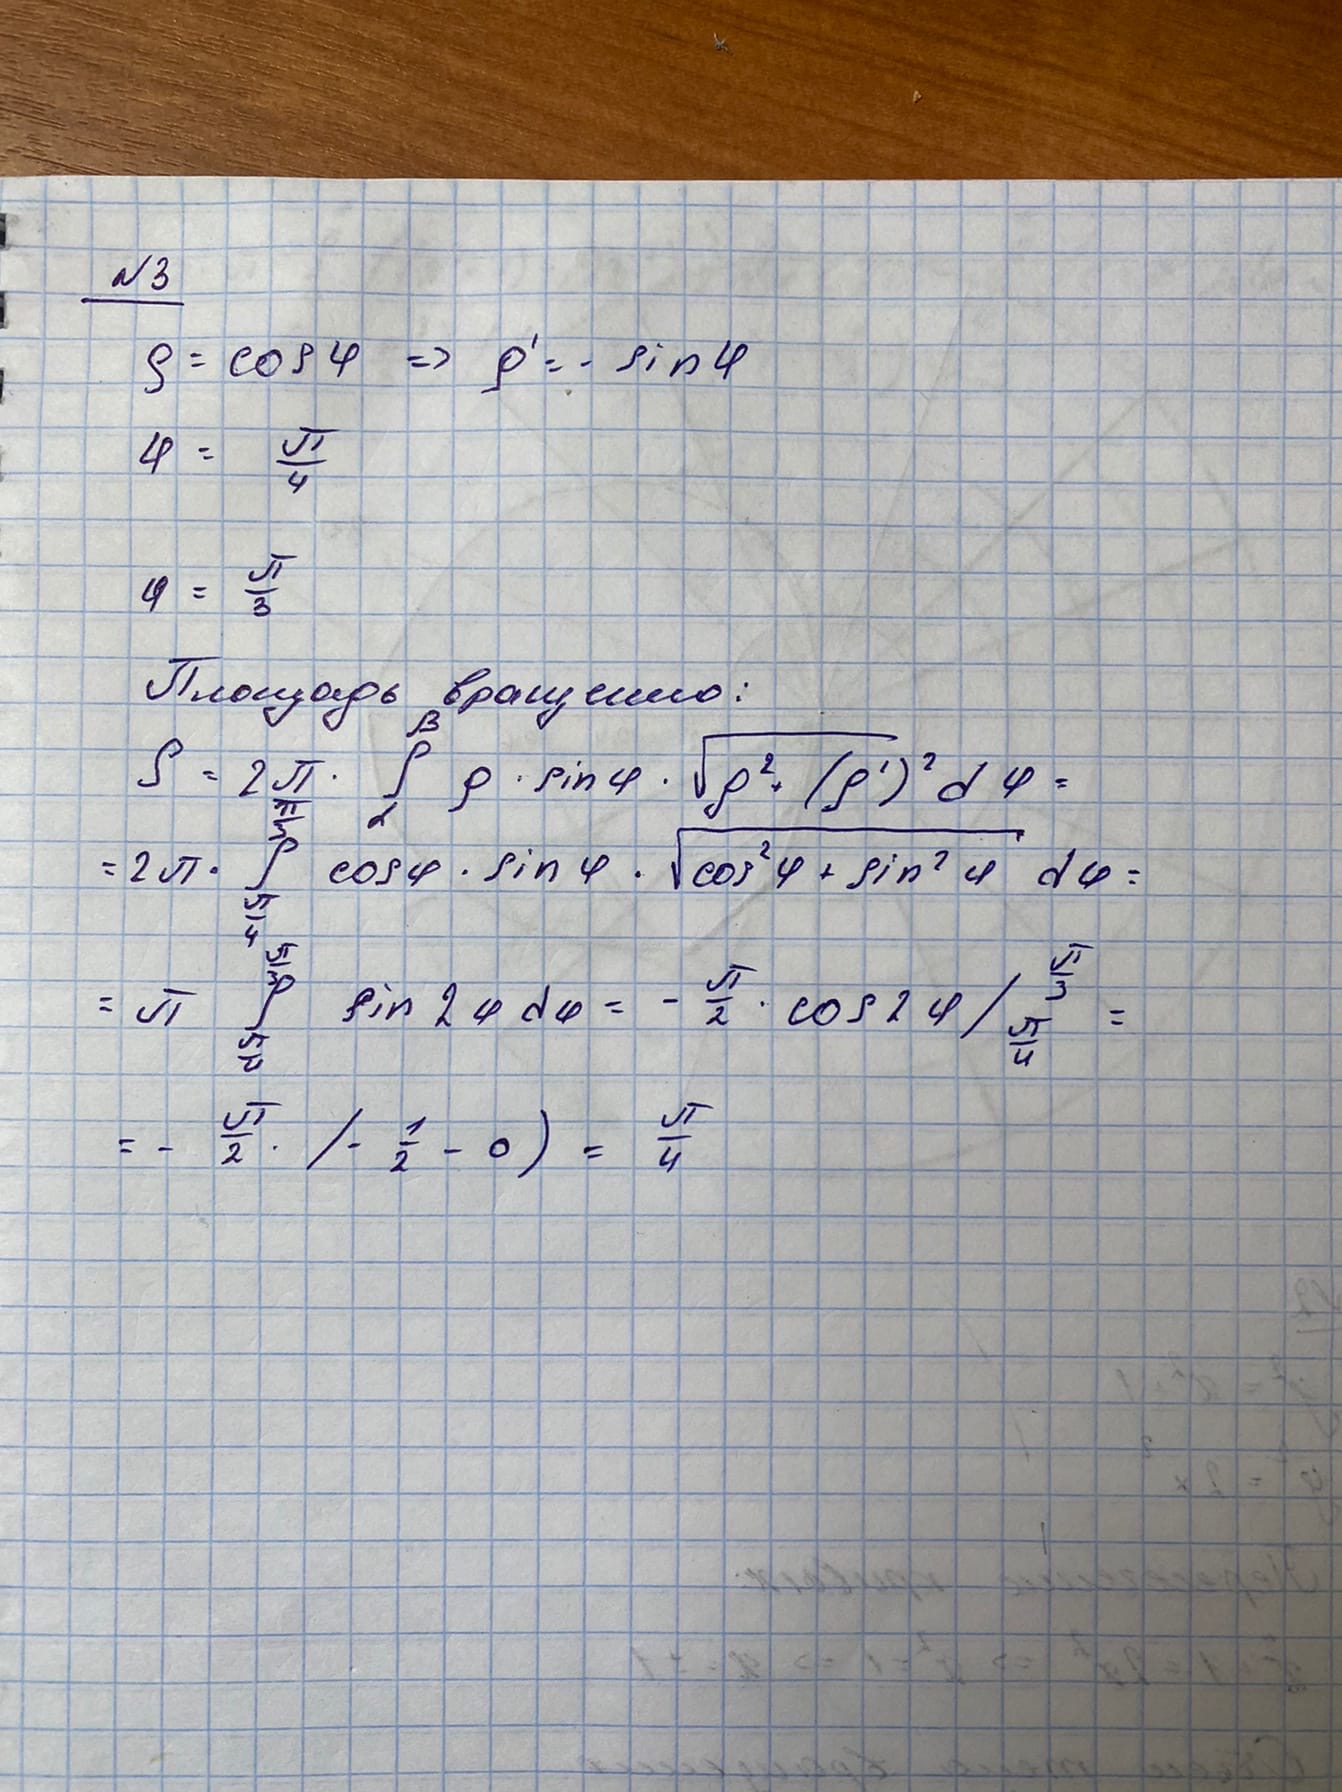 №3
ρ = cos φ => ρ' = - sin φ
φ = π/4
φ = π/3
Площадь вращению:
S = 2π · ∫_α^β ρ · sin φ · √(ρ² + (ρ')²) dφ =
= 2π · ∫_{π/4}^{π/3} cos φ · sin φ · √(cos² φ + sin² φ) dφ =
= π ∫_{π/4}^{π/3} sin 2φ dφ = - π/2 · cos 2φ /_{π/4}^{π/3} =
= - π/2 · (- 1/2 - 0) = π/4